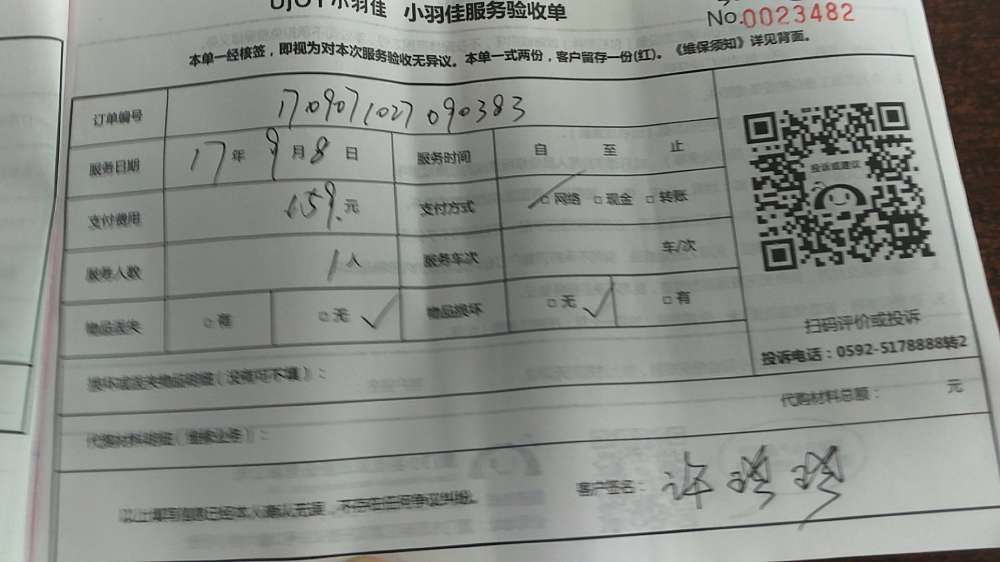 UJOY小羽佳 小羽佳服务验收单
No.0023482
本单一经核签，即视为对本次服务验收无异议。本单一式两份，客户留存一份(红)。《维保须知》详见背面。
订单编号 1709071027090383
服务日期 17年 9月 8日 服务时间 自 至 止
支付费用 159.元 支付方式 □网络 □现金 □转账
服务人数 1人 服务车次 车/次
物品丢失 □有 □无 ✓ 物品损坏 □无 ✓ □有
投诉或建议
扫码评价或投诉
投诉电话：0592-5178888转2
损坏或丢失物品明细（没有可不填）：
代购材料明细（维修业务）： 代购材料总额： 元
以上填写信息已经本人确认无误，不存在任何争议纠纷。 客户签名：许